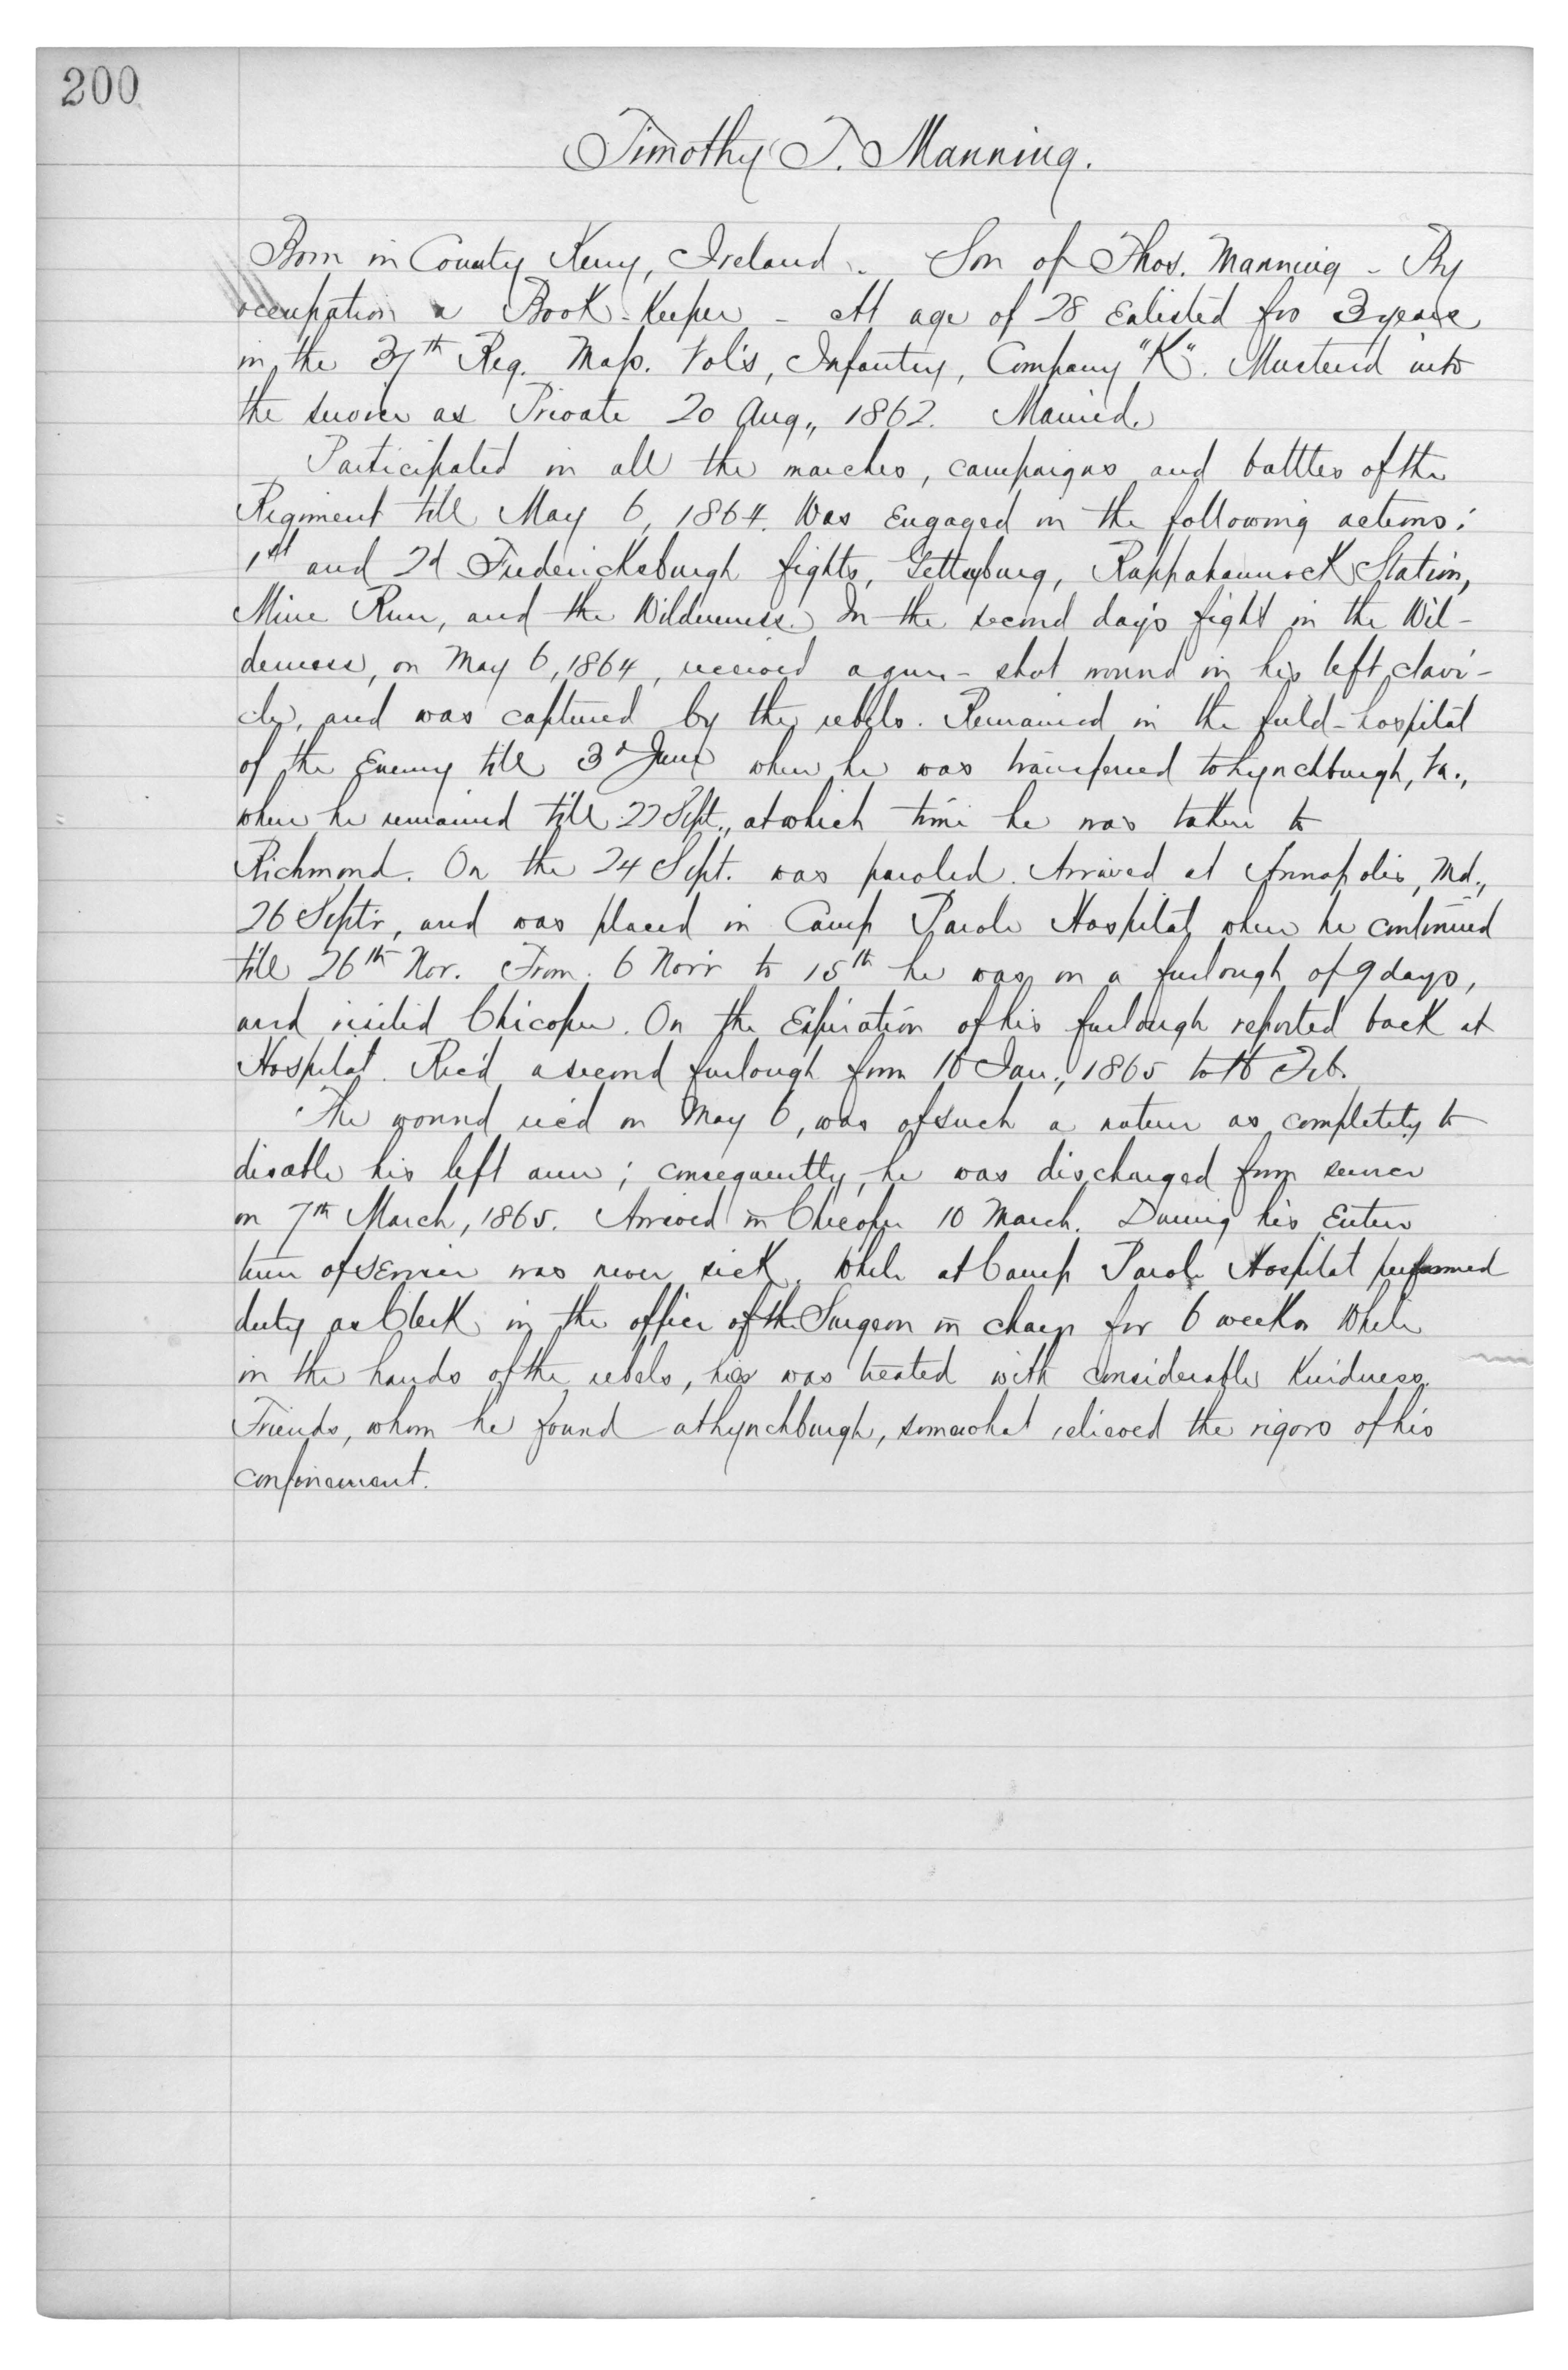 200
Timothy T. Manning.
Born in County Kerry, Ireland. Son of Thos. Manning - By
occupation a Book-Keeper - At age of 28 Enlisted for 3 years
in the 37th Reg. Mass. Vol's, Infantry, Company "K". Mustered into
the service as Private 20 Aug., 1862. Married.
Participated in all the marches, campaigns and battles of the
Regiment till May 6, 1864. Was Engaged in the following actions:
1st and 2d Fredericksburgh fights, Gettysburg, Rappahannock Station,
Mine Run, and the Wilderness. In the second day's fight in the Wil-
derness, on May 6, 1864, received a gun-shot wound in his left clavi-
cle, and was captured by the rebels. Remained in the field-hospital
of the Enemy till 3d June when he was transferred to Lynchburgh, Va.,
where he remained till 22 Sept., at which time he was taken to
Richmond. On the 24 Sept. was paroled. Arrived at Annapolis, Md.,
26 Sept'r, and was placed in Camp Parole Hospital, where he continued
till 26th Nov. From 6 Nov'r to 15th he was on a furlough of 9 days,
and visited Chicopee. On the Expiration of his furlough reported back at
Hospital. Rec'd a second furlough from 16 Jan., 1865 to 16 Feb.
The wound rec'd on May 6, was of such a nature as completely to
disable his left arm; consequently, he was discharged from service
on 7th March, 1865. Arrived in Chicopee 10 March. During his Entire
term of service was never sick. While at Camp Parole Hospital performed
duty as Clerk in the office of the Surgeon in charge for 6 weeks. While
in the hands of the rebels, he was treated with considerable Kindness.
Friends, whom he found at Lynchburgh, somewhat relieved the rigors of his
confinement.